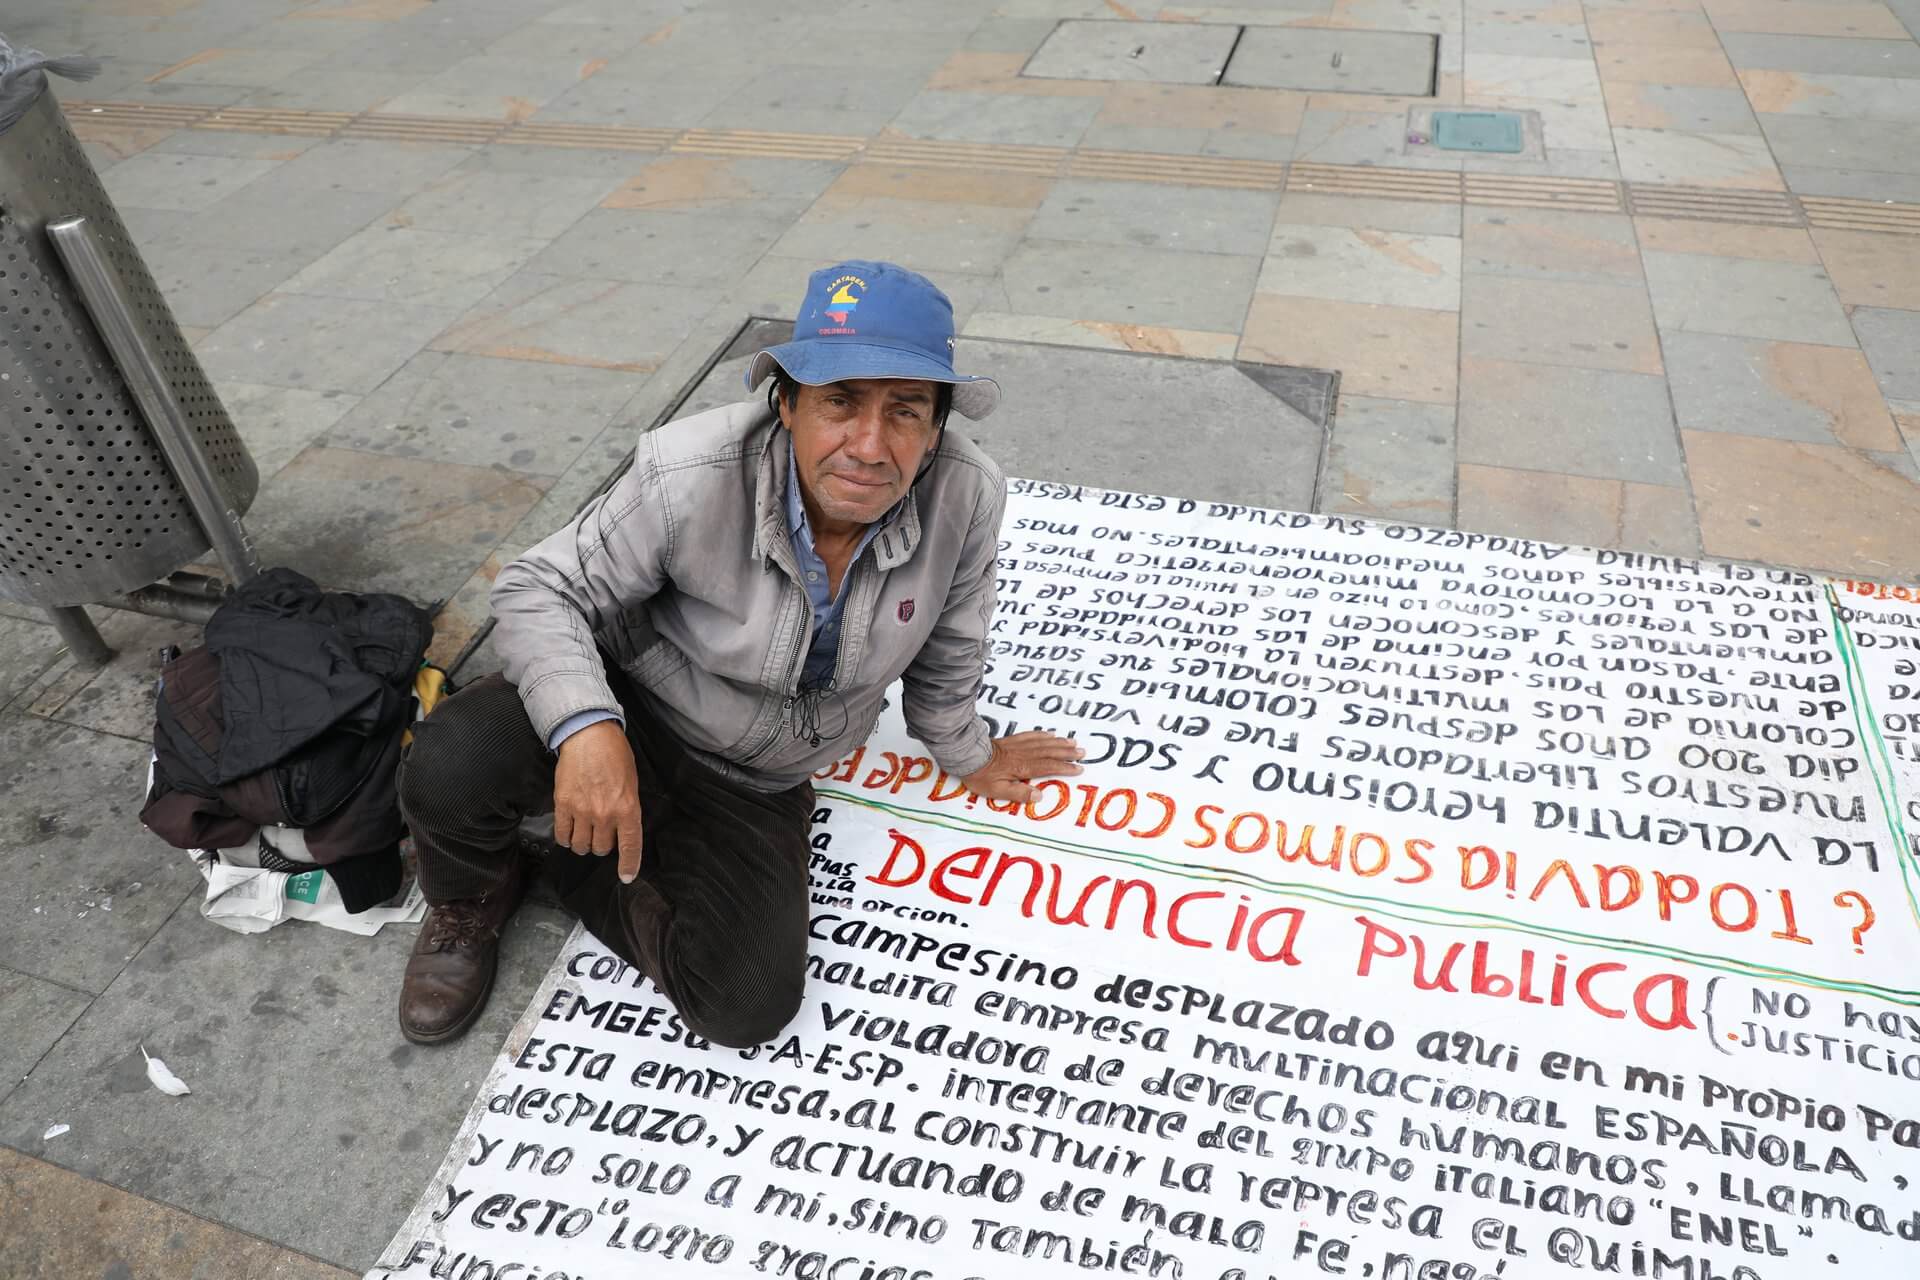 CARTAGENA
COLOMBIA
P
DENUNCIA PUBLICA
{ NO hay
JUSTICIA
a
a
una opcion.
campesino desplazado aqui en mi propio pa
maldita empresa multinacional ESPAÑOLA,
violadora de derechos humanos, llamad
EMGESA S-A-E-S-P. integrante del grupo italiano "ENEL".
ESTA empresa, al construir la represa el QUIMBO
desplazo, y actuando de mala fe, nego
y no solo a mi, sino tambien a
y esto "lo logro gracias
Funcio
¿ Todavia somos colonia de Es
La valentia heroismo y sacri
nuestros libertadores fue en vano, pu
dia 200 años despues colombia sigue
colonia de las multinacionales que saque
de nuestro pais. destruyen la biodiversidad y
ente, pasan por encima de las autoridades Ju
ambientales y desconocen los derechos de lo
de las regiones, como lo hizo en el HUILA la empresa Es
NO a la locomotora mineroenergetica pues
irreversibles daños medioambientales. NO mas
en el HUILA. Agradezco su ayuda a esta resis